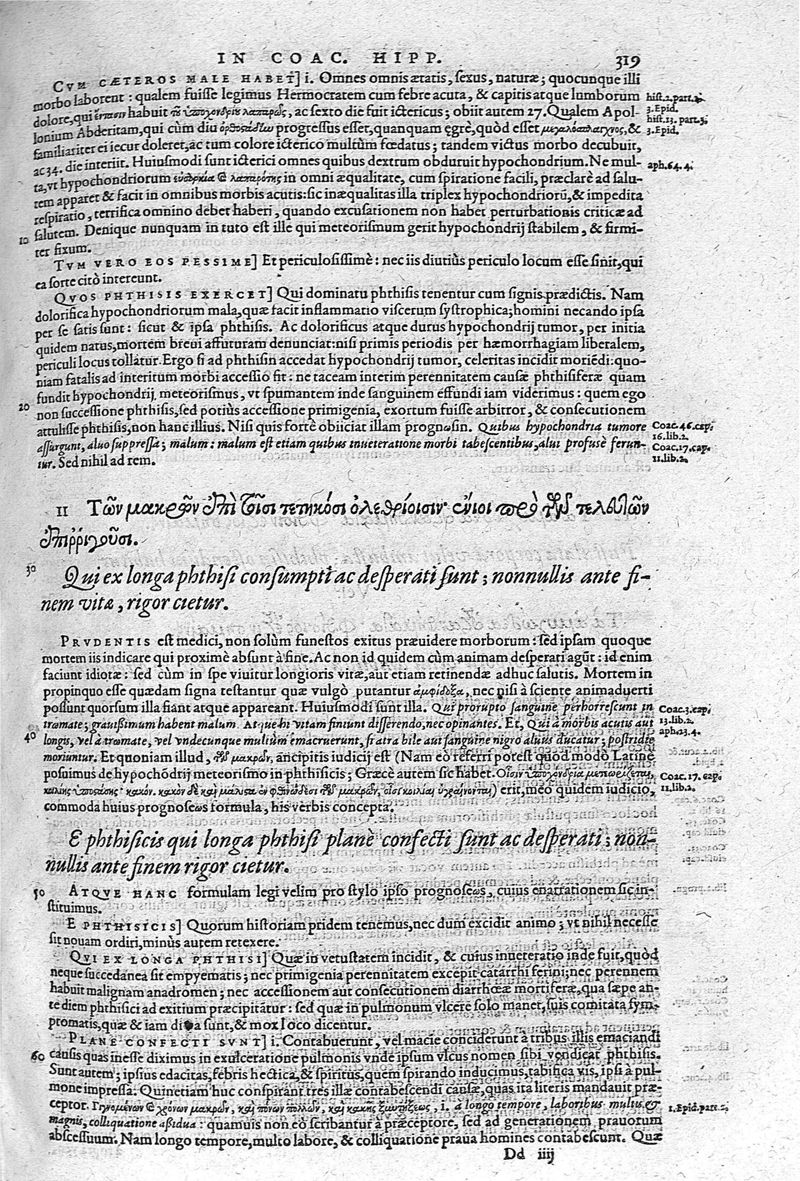 IN COAC. HIPP. 319
CVM CÆTEROS MALE HABET] i. Omnes omnis ætatis, sexus, naturæ; quocunque illi
morbo laborent: qualem fuisse legimus Hermocratem cum febre acuta, & capitis atque lumborum
dolore, qui habuit ac sexto die fuit ictericus; obiit autem 27. Qualem Apol-
lonium Abderitam, qui cùm diu progressus esset, quanquam ęgrè, quòd esset &
familiariter ei iecur doleret, ac tum colore icterico multùm fœdatus; tandem victus morbo decubuit,
ac 34. die interiit. Huiusmodi sunt icterici omnes quibus dextrum obduruit hypochondrium. Ne mul-
ta, vt hypochondriorum in omni æqualitate, cum spiratione facili, præclarè ad salu-
tem apparet & facit in omnibus morbis acutis: sic inæqualitas illa triplex hypochondriorũ, & impedita
respiratio, terrifica omnino debet haberi, quando excusationem non habet perturbationis criticæ ad
10 salutem. Denique nunquam in tuto est ille qui meteorismum gerit hypochondrij stabilem, & firmi-
ter fixum.
TVM VERO EOS PESSIME] Et periculosissimè: nec iis diutiùs periculo locum esse sinit, qui
ea sorte citò intereunt.
QVOS PHTHISIS EXERCET] Qui dominatu phthisis tenentur cum signis prædictis. Nam
dolorifica hypochondriorum mala, quæ facit inflammatio viscerum systrophica; homini necando ipsa
per se satis sunt: sicut & ipsa phthisis. Ac dolorificus atque durus hypochondrij tumor, per initia
quidem natus, mortem breui affuturam denunciat: nisi primis periodis per hæmorrhagiam liberalem,
periculi locus tollatur. Ergo si ad phthisin accedat hypochondrij tumor, celeritas incidit moriẽdi: quo-
niam fatalis ad interitum morbi accessio fit: ne taceam interim perennitatem causæ phthisiferæ quam
fundit hypochondrij meteorismus, vt spumantem inde sanguinem effundi iam viderimus: quem ego
20 non successione phthisis, sed potiùs accessione primigenia, exortum fuisse arbitror, & consecutionem
attulisse phthisis, non hanc illius. Nisi quis fortè obiiciat illam prognosin. Quibus hypochondria tumore
assurgunt, aluo suppressa; malum: malum est etiam quibus inueteratione morbi tabescentibus, alui profusè ferun-
tur. Sed nihil ad rem.
hist.2.part.3.
3.Epid.
hist.13.part.3.
3.Epid.
aph.64.4.
Coac.46.cap.
16.lib.2.
Coac.17.cap.
11.lib.2.
II Τῶν μακρῶν ἐπὶ τῇσι τετηκόσι ὀλεθρίοισιν· ἔνιοι πρὸ τῶν τελευτῶν
ἐπιρριγοῦσι.
30 Qui ex longa phthisi consumpti ac desperati sunt; nonnullis ante fi-
nem vitæ, rigor cietur.
PRVDENTIS est medici, non solùm funestos exitus præuidere morborum: sed ipsam quoque
mortem iis indicare qui proximè absunt à fine. Ac non id quidem cùm animam desperati agũt: id enim
faciunt idiotæ: sed cùm in spe viuitur longioris vitæ, aut etiam retinendæ adhuc salutis. Mortem in
propinquo esse quædam signa testantur quæ vulgò putantur ἀμφίδοξα, nec nisi à sciente animaduerti
possunt quorsum illa fiant atque appareant. Huiusmodi sunt illa. Qui prorupto sanguine perhorrescunt in
tramate; grauissimum habent malum. Atque hi vitam finiunt disserendo, nec opinantes. Et, Qui à morbis acutis aut
40 longis, vel à tramate, vel vndecunque multùm emacruerunt, si atra bile aut sanguine nigro aluus ducatur; postridie
moriuntur. Et quoniam illud, ancipitis iudicij est (Nam eò referri potest quod modò Latinè
posuimus de hypochõdrij meteorismo in phthisicis; Græcè autem sic habet.
erit, meo quidem iudicio,
commoda huius prognoseωs formula, his verbis concepta.
Coac.3.cap.
13.lib.2.
aph.23.4.
Coac.17.cap.
11.lib.2.
E phthisicis qui longa phthisi planè confecti sunt ac desperati; non-
nullis ante finem rigor cietur.
50 ATQVE HANC formulam legi velim pro stylo ipso prognoseωs, cuius enarrationem sic in-
stituimus.
E PHTHISICIS] Quorum historiam pridem tenemus, nec dum excidit animo; vt nihil necesse
sit nouam ordiri, minùs autem retexere.
QVI EX LONGA PHTHISI] Quæ in vetustatem incidit, & cuius inueteratio inde fuit, quòd
neque succedanea sit empyematis; nec primigenia perennitatem excepit catarrhi ferini; nec perennem
habuit malignam anadromen; nec accessionem aut consecutionem diarrhœæ mortiferæ, qua sæpe an-
te diem phthisici ad exitium præcipitãtur: sed quæ in pulmonum vlcere solo manet, suis comitata sym-
ptomatis, quæ & iam dicta sunt, & mox loco dicentur.
PLANE CONFECTI SVNT] i. Contabuerunt, vel macie conciderunt à tribus illis emaciandi
60 causis quas inesse diximus in exulceratione pulmonis vnde ipsum vlcus nomen sibi vendicat phthisis.
Sunt autem; ipsius edacitas, febris hectica, & spiritus, quem spirando inducimus, tabifica vis, ipsi à pul-
mone impressa. Quinetiam huc conspirant tres illæ contabescendi causæ, quas ita literis mandauit præ-
ceptor. i. à longo tempore, laboribus multis, &
magnis, colliquatione assidua: quamuis non eo scribantur à præceptore, sed ad generationem prauorum
abscessuum. Nam longo tempore, multo labore, & colliquatione praua homines contabescunt. Quæ
1.Epid.part.2.
Dd iiij